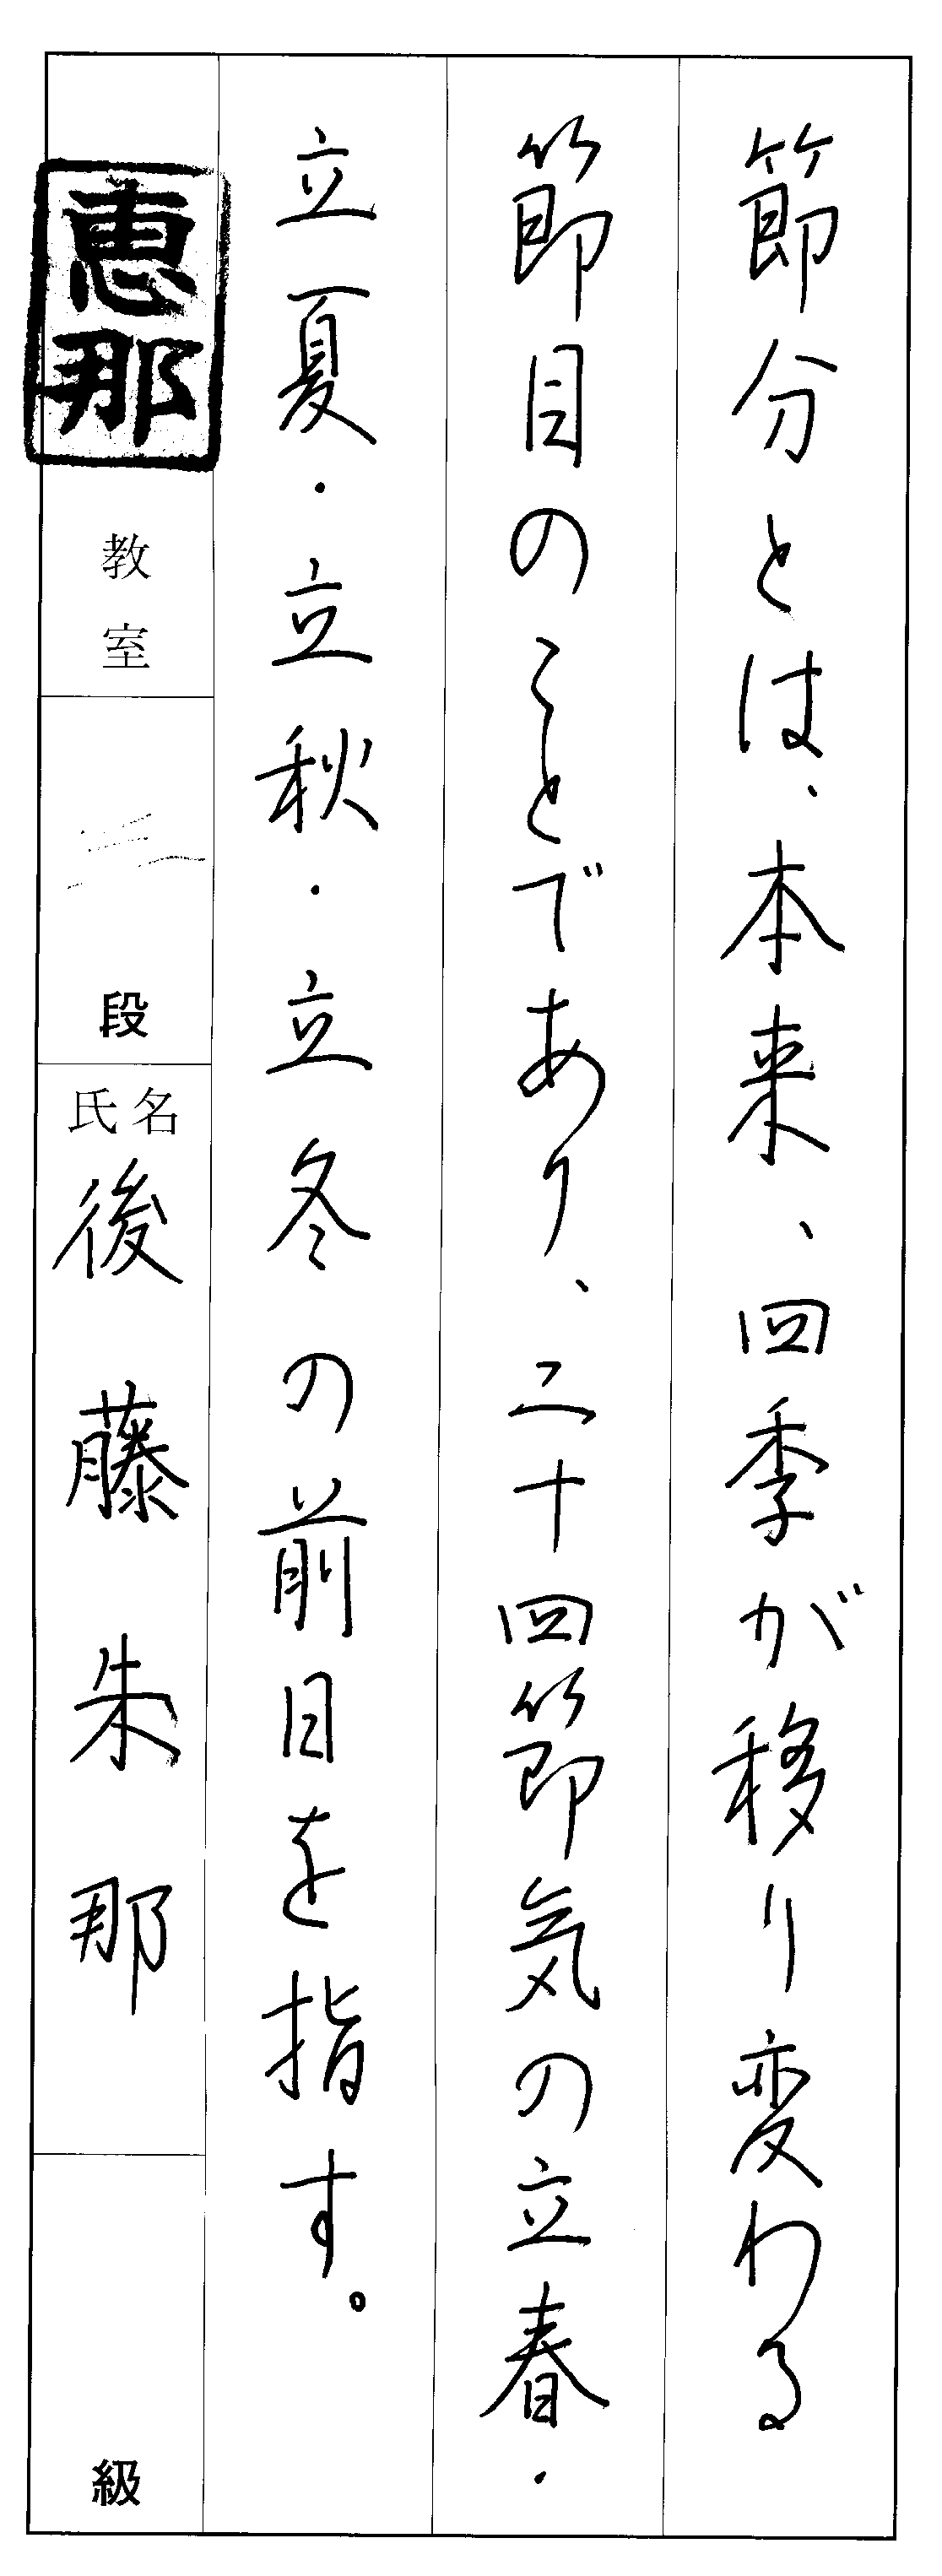 節分とは、本来、四季が移り変わる
節目のことであり、二十四節気の立春・
立夏・立秋・立冬の前日を指す。
恵那
教室
段
氏名
後藤朱那
級